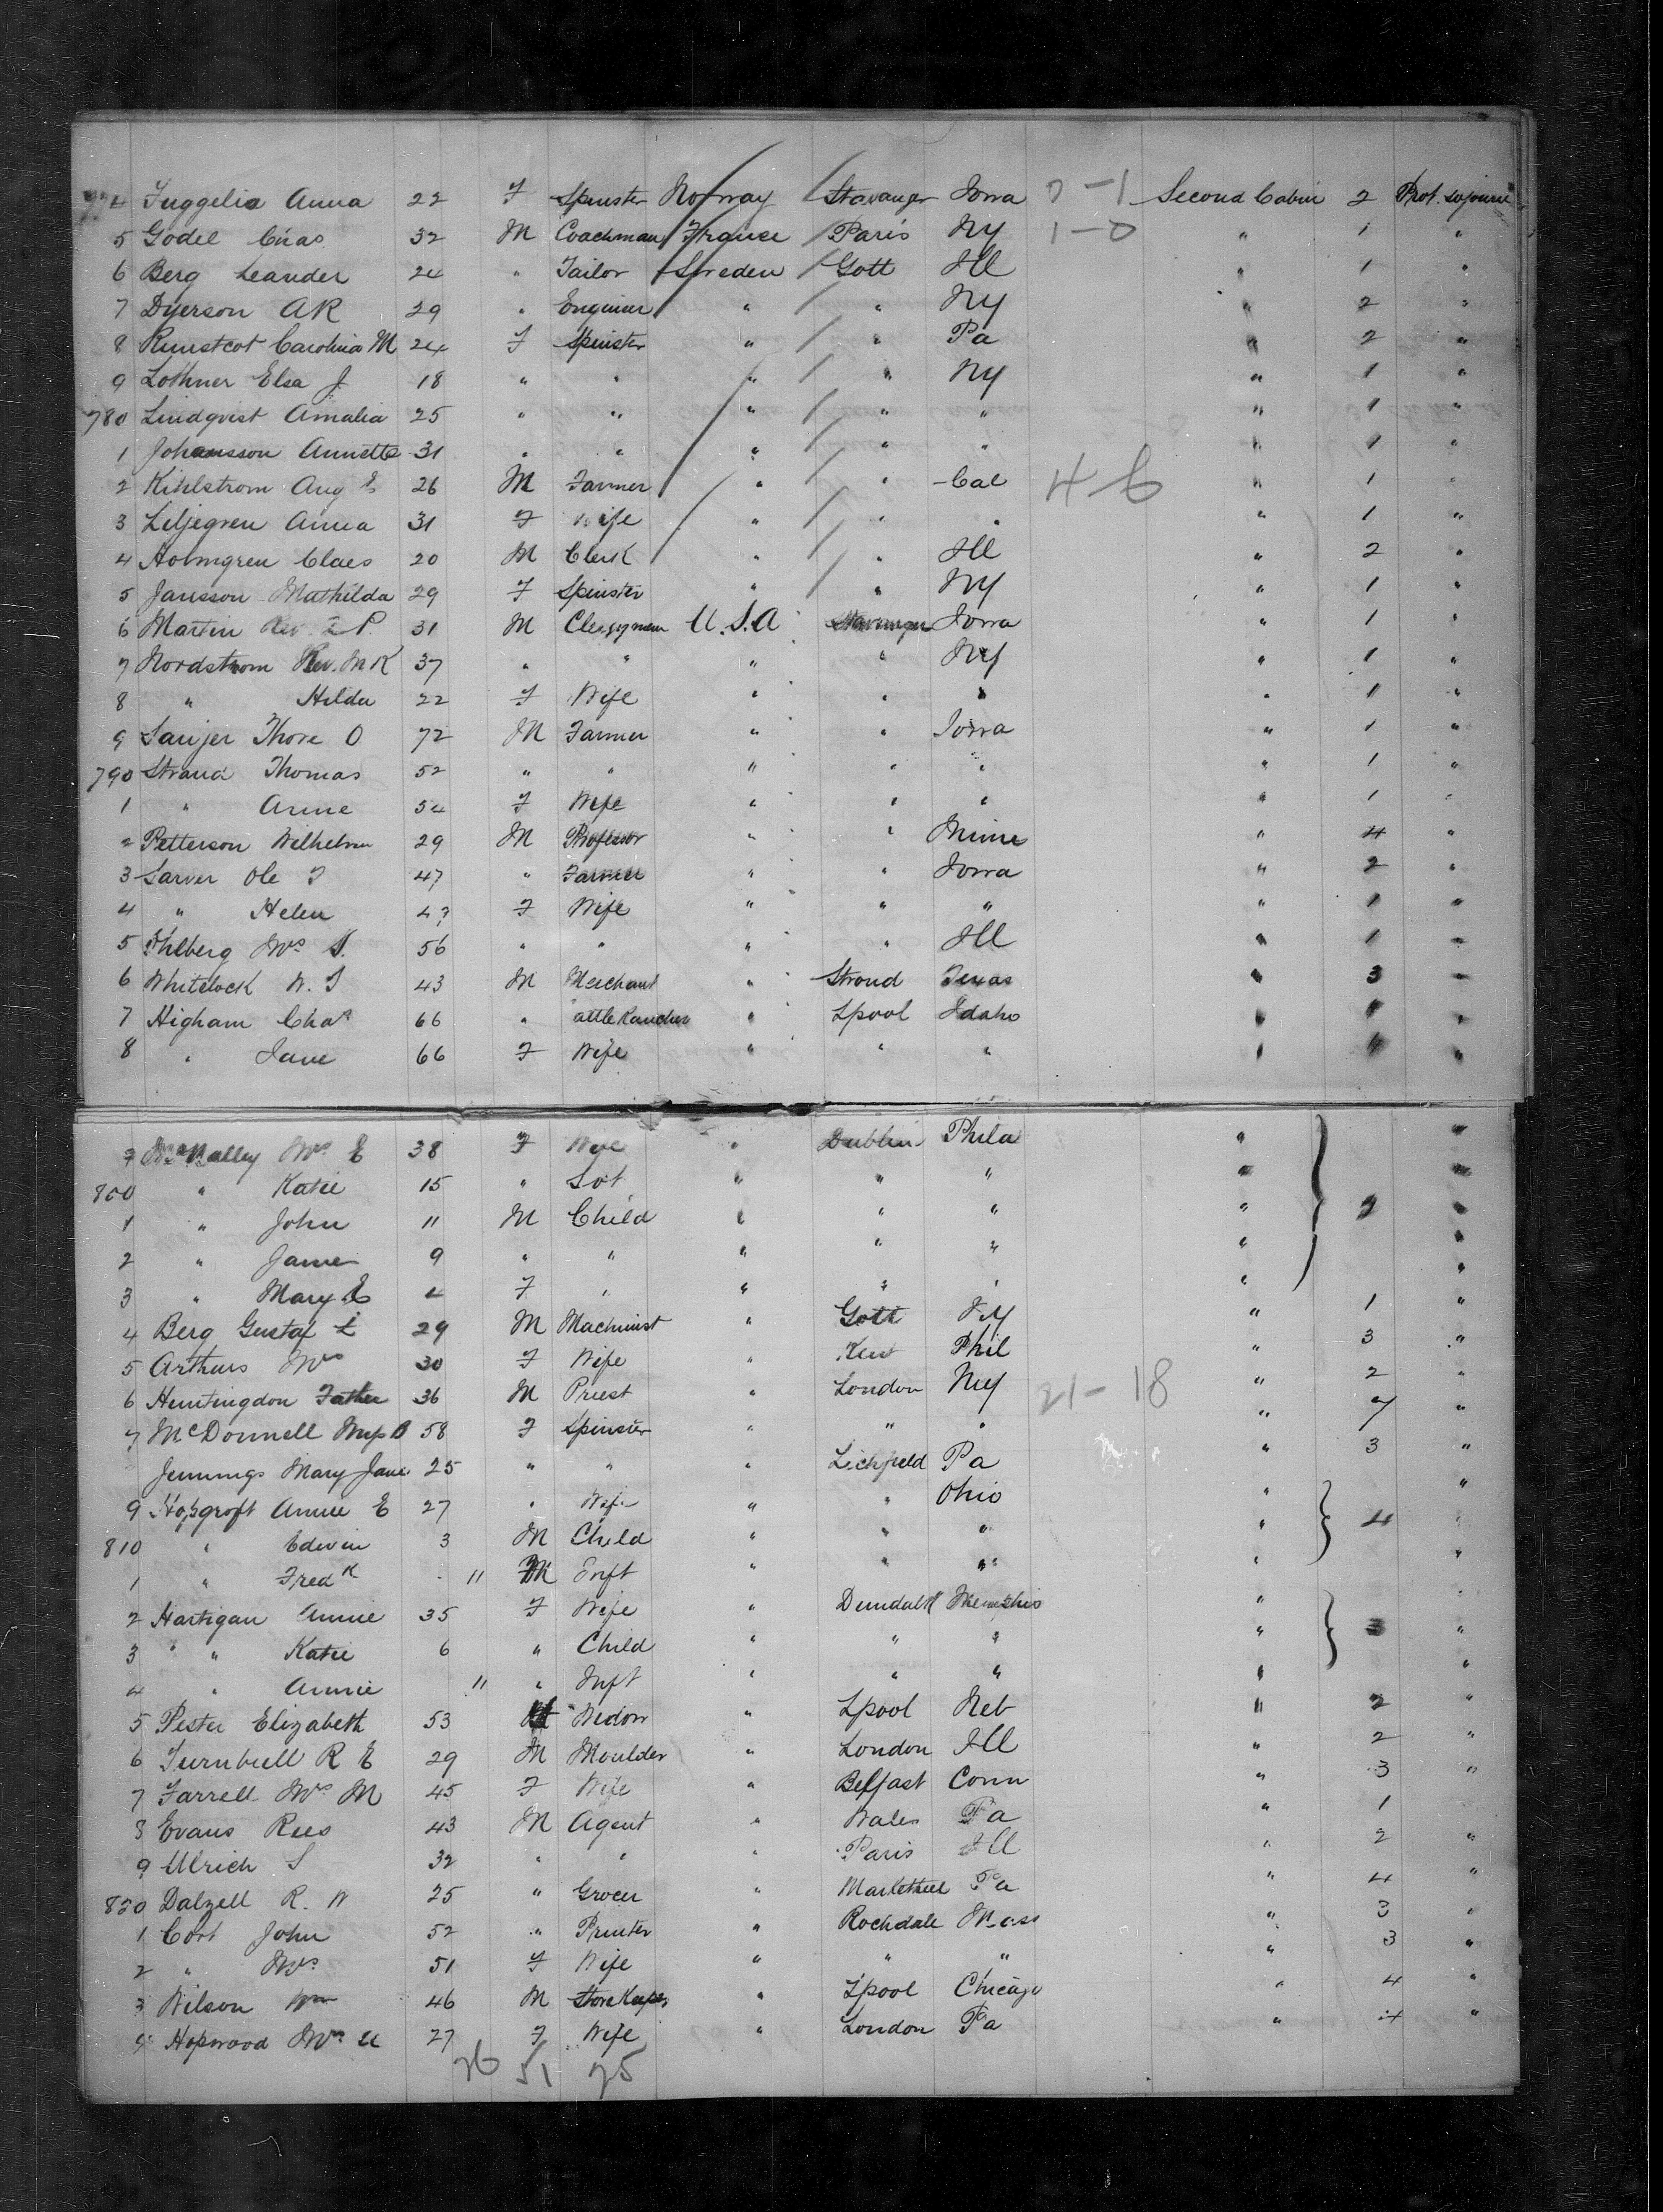 774 Inggelia Anna 22 F Spinster Norway Stavanger Iowa 0-1 Second Cabin 2 Prot. sojourn
5 Godel Chas 32 M Coachman France Paris NY 1-0 " 1 "
6 Berg Leander 24 " Tailor Sweden Gott Ill " 1 "
7 Dyerson AR 29 " Engineer " " NY " 2 "
8 Carolina M 24 F Spinster " " Pa " 2 "
9 Lothner Elsa J. 18 " " " " NY " 1 "
780 Lindqvist Amalia 25 " " " " " " 1 "
1 Johansson Annette 31 " " " " " " 1 "
2 Kihlstrom Aug E 26 M Farmer " " Cal 4-6 " 1 "
3 Liljegren Anna 31 F Wife " " " " 1 "
4 Holmgren Claes 20 M Clerk " " Ill " 2 "
5 Jansson Mathilda 29 F Spinster " " NY " 1 "
6 Martin Rev. P. 31 M Clergyman U.S.A Stavanger Iowa " 1 "
7 Nordstrom Rev. M K 37 " " " " NY " 1 "
8 " Hilda 22 F Wife " " " " 1 "
9 Thore O 72 M Farmer " " Iowa " 1 "
790 Strand Thomas 52 " " " " " " 1 "
1 " Anne 54 F Wife " " " " 1 "
2 Petterson Wilhelm 29 M Professor " " Minn " 4 "
3 Sarver Ole T 47 " Farmer " " Iowa " 2 "
4 " Helen 47 F Wife " " " " 1 "
5 Mrs S. 56 " " " " Ill " 1 "
6 Whitelock W. T 43 M Merchant " Stroud Texas " 3 "
7 Higham Chas 66 " attle Rancher " Lpool Idaho " 1 "
8 " Jane 66 F Wife " " " " "
9 McNalley Mrs E 38 F Wife " Dublin Phila "
800 " Katie 15 " " " " " "
1 " John 11 M Child " " " " 2 "
2 " James 9 " " " " " " "
3 " Mary E 4 F " " " " " "
4 Berg Gustaf L 29 M Machinist " Gott NY " 1 "
5 Arthurs Mrs 30 F Wife " Kent Phil " 3 "
6 Huntingdon Father 36 M Priest " London NY 21-18 " 2 "
7 McDonnell Miss B 58 F Spinster " " " " 7 "
Jennings Mary Jane 25 " " " Lichfield Pa " 3 "
9 Hopgroft Annie E 27 " Wife " " Ohio " "
810 " Edwin 3 M Child " " " " 4 "
1 " Fredk 11 M Inft " " " " "
2 Hartigan Annie 35 F Wife " Dundalk Memphis " "
3 " " Katie 6 " Child " " " " 3 "
4 " Annie 11 " Inft " " " " "
5 Pester Elizabeth 53 Widow " Lpool Neb " 2 "
6 Turnbull R E 29 M Moulder " London Ill " 2 "
7 Farrell Mrs M 45 F Wife " Belfast Conn " 3 "
8 Evans Rees 43 M Agent " Wales Pa " 1
9 Ulrich S 32 " " " Paris Ill " 2 "
820 Dalzell R. W 25 " Grocer " Pa " 4 "
1 Cort John 52 " Printer " Rochdale Mass " 3 "
2 " Mrs 51 F Wife " " " " 3 "
3 Wilson Wm 46 M Store Keeper " Lpool Chicago " 4 "
Hopwood Mrs A 27 F Wife " London Pa " 4 "
26 51 25